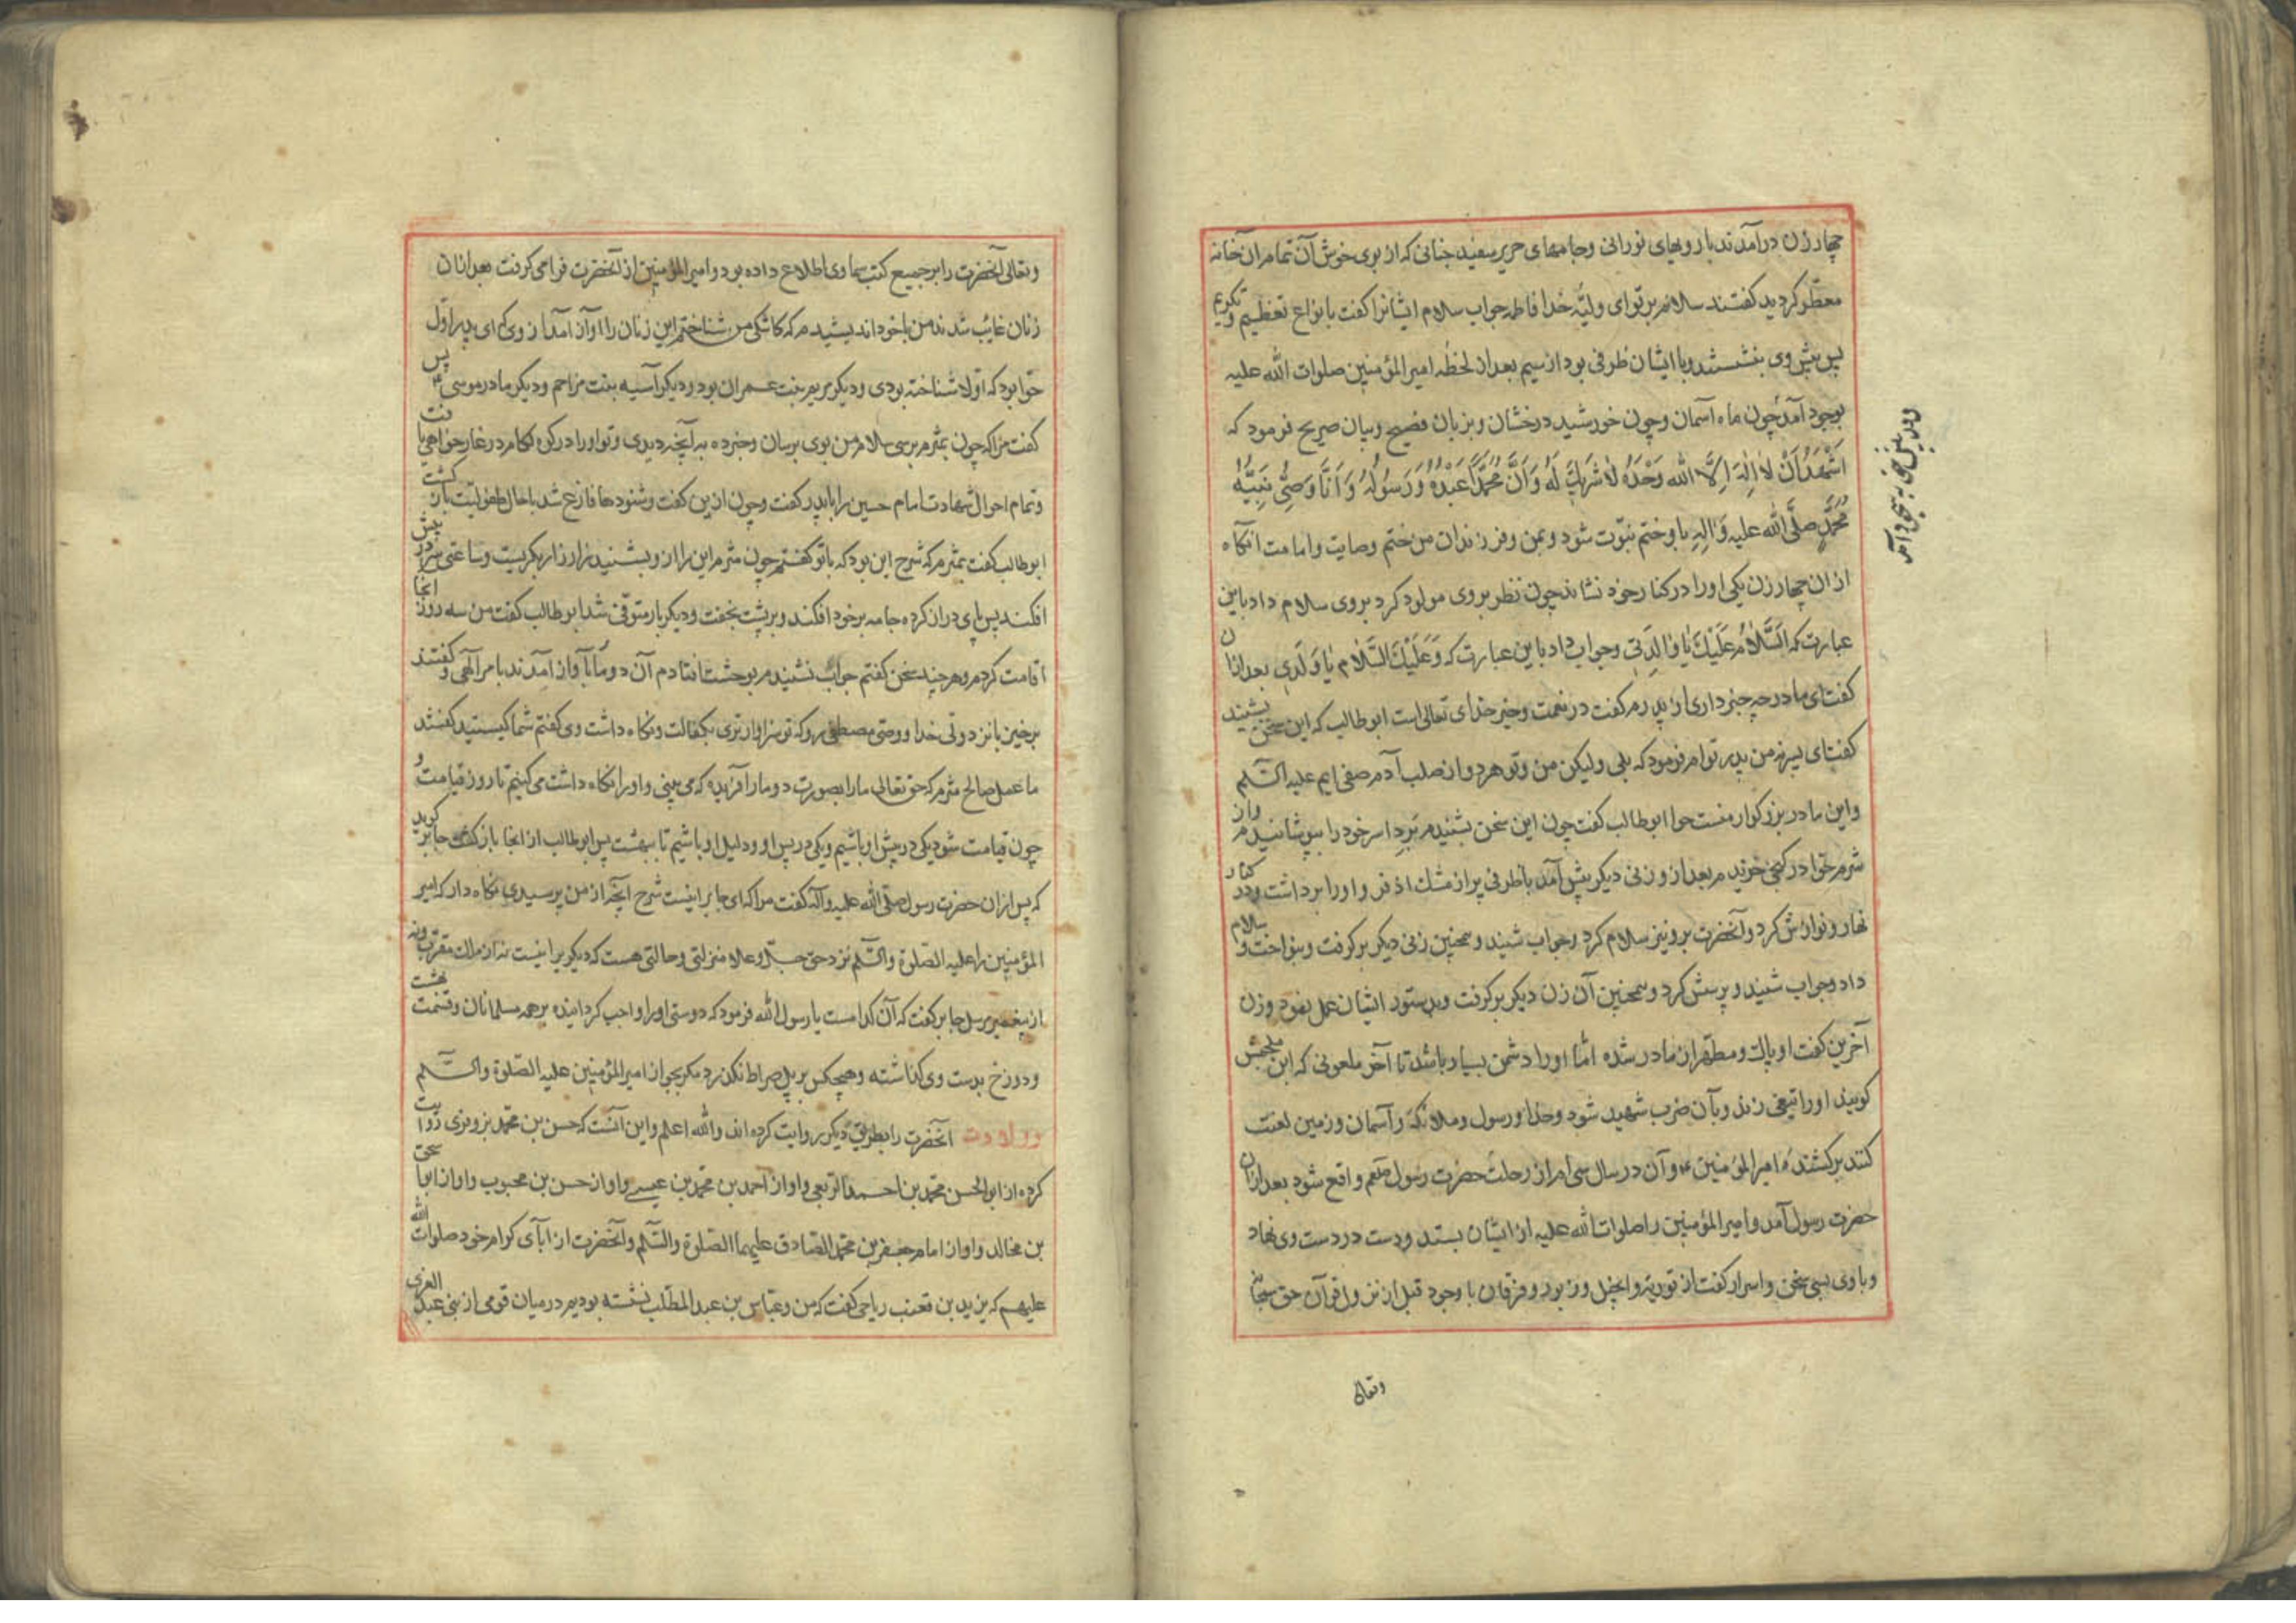 چهار زن درآمدند با رویهای نورانی و جامهای حریر سفید چنانی که از بوی خوش آن تمامر آن خانه
معطر کردید کفتند سلام بر تو ای ولیّه خدا فاطمه جواب سلام ایشانرا کفت بانواع تعظیم و تکریم
پس پیش وی بنشستند و با ایشان ظرفی بود از سیم بعد از لحظه امیر المؤمنین صلوات الله علیه
بوجود آمد چون ماه آسمان و چون خورشید درخشان و بزبان فصیح و بیان صریح فرمود که
اَشْهَدُ اَنْ لا اِلٰهَ اِلَّا الله وَحْدَهُ لا شَرِیكَ لَهُ وَ اَنَّ مُحَمَّدًا عَبْدُهُ وَ رَسُولُهُ وَ اَنَا وَصِیُّ نَبِیِّهِ
مُحَمَّدٍ صلَّی الله علیه وَ اٰلِهِ باو ختم نبوّت شود و بمن و فرزندان من ختم وصایت و امامت انکاه
از ان چهار زن یکی او را در کنار خود نشاند چون نظر بروی مولود کرد بروی سلام داد باین
عبارت که اَلسَّلامُ عَلَیْكَ یا والِدَتی وجواب داد باین عبارت که وَ عَلَیْكَ السَّلام یا وَلَدی بعد ازان
کفت ای مادر چه خبر داری از پدرم کفت در نعمت و خیر خدای تعالی است ابوطالب که این سخن بشنید
کفت ای پسر نه من پدر توام فرمود که بلی ولیکن من و تو هر دو از صلب آدم صفی ایم علیه السّلم
واین مادر بزرکوار منست حوا ابوطالب کفت چون این سخن بشنیدم بردا سر خود را بپوشانیدم واز
شرم خود را در کنجی خزیدم بعد ازو زنی دیکر پیش آمد با ظرفی پر از مشك اذفر و او را برداشت و در کنار
نهاد و نوازش کرد و آنحضرت برو نیز سلام کرد و جواب شنید و همچنین زنی دیکر برکرفت و بنواخت و سلام
داد وجواب شنید و پرسش کرد و همچنین آن زن دیکر برکرفت و بدستور ایشان عمل نمود و زن
آخرین کفت او پاك و مطهر از مادر شده اما او را دشمن بسیار باشد تا آخر ملعونی که ابن ملجمش
کویند او را تیغی زند و بآن ضرب شهید شود و خدا و رسول و ملائکه و آسمان و زمین لعنت
کنند بر کشنده امیر المؤمنین ع و آن در سال سی ام از رحلت حضرت رسول صلعم واقع شود بعد ازان
حضرت رسول آمد و امیر المؤمنین را صلوات الله علیه از ایشان بستد و دست در دست وی نهاد
و با وی بسی سخن و اسرار کفت از توریة و انجیل و زبور و فرقان با وجود قبل از نزول قرآن حق سبحانه
وتعالی
وتعالی آنحضرت را بر جمیع کتب سماوی اطلاع داده بود و امیر المؤمنین از آنحضرت فرامی کرفت بعد ازان
زنان غایب شدند من با خود اندیشیدم که کاشکی من شناختم این زنان را آواز آمد از وی که ای پدر اوّل
حوا بود که اوّلا شناخته بودی و دیکر مریم بنت عمران بود و دیکر آسیه بنت مزاحم و دیکر مادر موسی ع پس
کفت مرا که چون بمثرم برسی سلام من بوی برسان و خبر ده بهر آنچه دیدی و تو او را در کوه لکام در غار خواهی یافت
و تمام احوال شهادت امام حسین را با پدر کفت و چون ازین کفت و شنودها فارغ شد با حال طفولیّت باز کشت
ابوطالب کفت بمثرم که شرح این بود که با تو کفتم چون مثرم این را از و بشنید زار زار بکریست و ساعتی سر در پیش
افکند پس پای دراز کرده جامه بر خود افکند و بر پشت بخفت و دیکر بار متوفّی شد ابوطالب کفت من سه روز انجا
اقامت کردم و هر چند سخن کفتم جواب نشنیدم بوحشت افتادم آن دو مار باواز آمدند بامر الهی و کفتند
برخیز باز نزد ولی خدا و وصّی مصطفی رو که تو سزاوارتری بکفالت و نکاه داشت وی کفتم شما کیستید کفتند
ما عمل صالح مثرم که حق تعالی مارا بصورت دو مار آفریده که می بینی و او را نکاه داشت می کنیم تا روز قیامت و
چون قیامت شود یکی در پیش او باشیم ویکی در پس او و دلیل او باشیم تا ببهشت پس ابوطالب از انجا باز کشت جابر کوید
که پس از ان حضرت رسول صلّی الله علیه وآله کفت مرا که ای جابر اینست شرح آنچه از من پرسیدی نکاه دار که امیر
المؤمنین را علیه الصّلوة والسّلم نزد حق جلّ و علا منزلتی و حالتی هست که دیکر یرا نیست نه از ملك مقرّب و نه
از پیغمبر مرسل جابر کفت که آن کدامست یا رسول الله فرمود که دوستی او را واجب کردانیده بر همه مسلمانان و قسمت بهشت
و دوزخ بدست وی کذاشته و هیچکس بر پل صراط نکذرد مکر بجواز امیر المؤمنین علیه الصّلوة والسّلم
وولادت آنحضرت را بطریق دیکر روایت کرده اند والله اعلم و این آنست که حسن بن محمّد بزوفری روایت
کرده از ابو الحسن محمّد بن احمد الربعی و او از احمد بن محمّد بن عیسی و او از حسن بن محبوب و او از اسحق
بن مخالد و او از امام جعفر بن محمّد الصّادق علیهما الصّلوة والسّلم و آنحضرت از ابآی کرام خود صلوات الله
علیهم که یزید بن قعنب ریاحی کفت که من و عبّاس بن عبد المطّلب نشسته بودیم در میان قومی از بنی عبد العزی